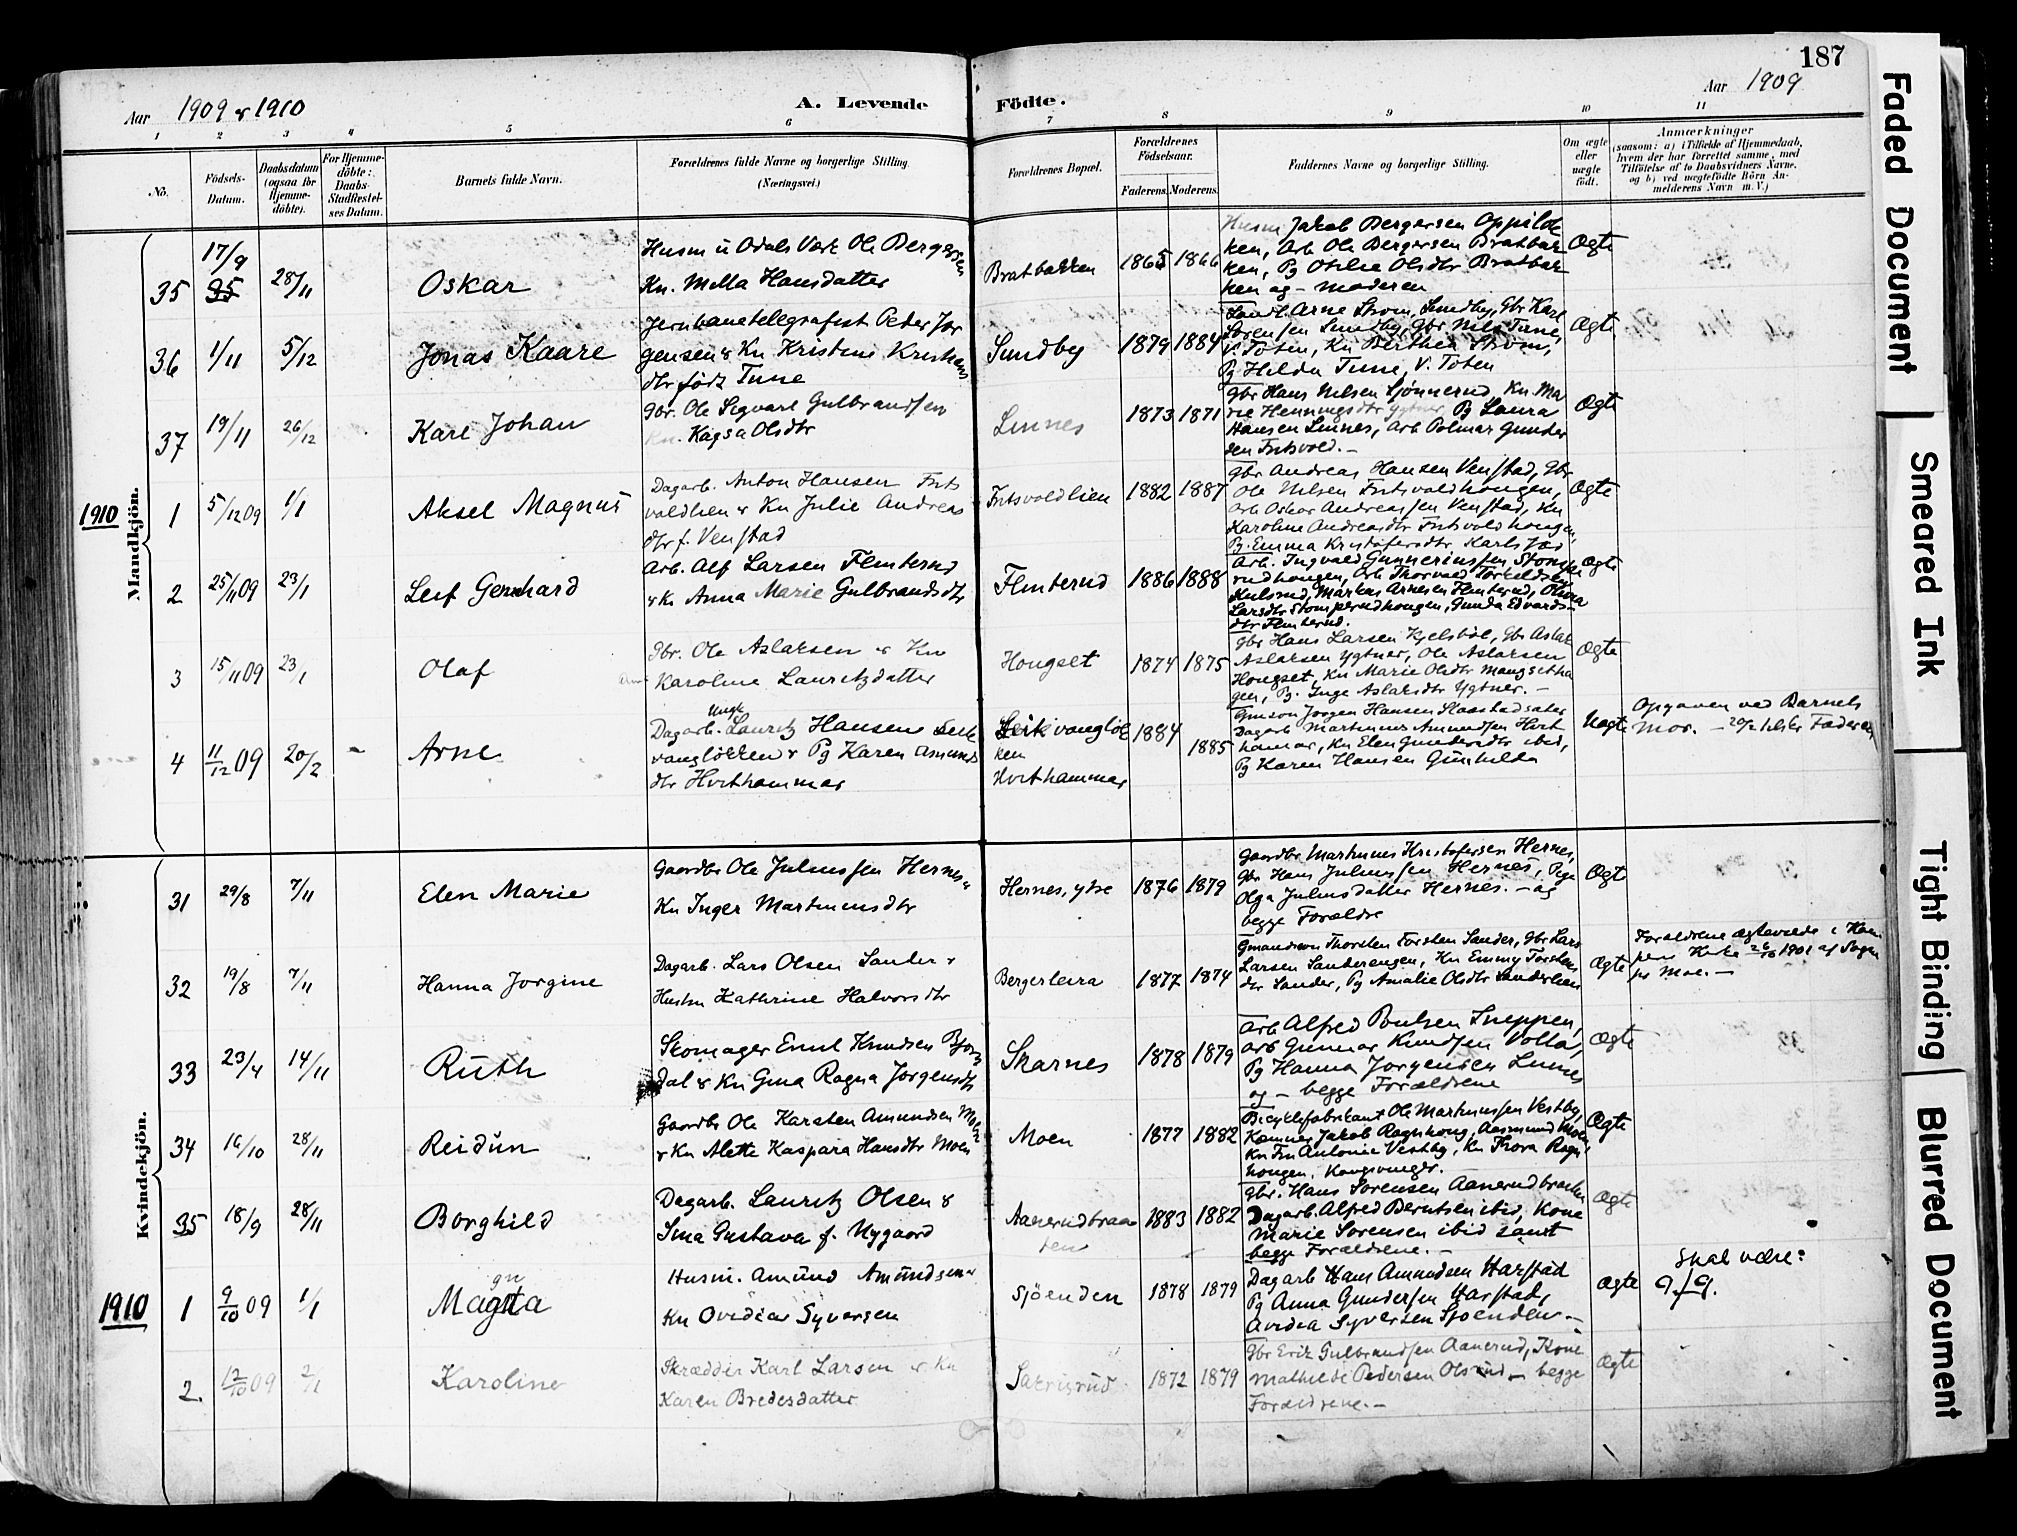 187
Aar 1909 & 1910
A. Levende Födte.
Aar 1909
1 2 3 4 5 6 7 8 9 10 11
No.
Födsels-Datum.
Daabsdatum (ogsaa for Hjemme-döbte).
For Hjemme-döbte: Daabs-Stadfæstel-ses Datum.
Barnets fulde Navn.
Forældrenes fulde Navne og borgerlige Stilling. (Næringsvei.)
Forældrenes Bopæl.
Forældrenes Födselsaar.
Faderens. Moderens.
Faddernes Navne og borgerlige Stilling.
Om ægte eller uægte födt.
Anmærkninger
(saasom: a) i Tilfælde af Hjemmedaab, hvem der har forrettet samme, med Tilföielse af to Daabsvidners Navne. og b) ved uægtefödte Börn An-melderens Navn m. V.)
Mandkjön.
35 17/9 28/11 Oskar
Husm u Odals Værk Ole Bergersen
Kn. Mella Hansdatter
Bratbakken 1865 1866
Husm Jakob Bergersen Oppilbk
ken, Arb Ole Bergersen Bratbak
ken, Pg Otilie Olsdtr Bratbak
ken og – moderen
Ægte
36 1/11 5/12 Jonas Kaare
Jernbanetelegrafist Peder Jør
gensen & Kn Kristine Kristians
dtr født Tune
Sundby 1879 1884
Landh. Arne Strøm, Sundby, Gbr Karl
Sørensen Sundby, Gbr Nils Tune,
V. Toten, Kn Berthea Strøm,
Pg Hilda Tune, V. Toten
Ægte
37 19/11 26/12 Karl Johan
Gbr. Ole Sigvart Gulbrandsen
Kn. Kagsa Olsdtr
Linnes 1873 1871
Gbr Hans Nilsen Sjønnerud, Kn. Ma
rie Henningsdtr Ygtner, Pg Laura
Hansen Linnes, Arb Polmar Gunder
sen Fritsvold. –
Ægte
1910
1 5/12 09 1/1 Aksel Magnus
Dagarb. Anton Hansen Frits
voldlien & Kn Julie Andreas
dtr f. Venstad
Fritsvoldlien 1882 1887
Gbr Andreas Hansen Venstad, Gbr
Ole Nilsen Fritsvoldhougen,
Arb Oskar Andreassen Venstad, Kn
Karoline Andreasdtr Fritsvoldhougen,
Pg. Emma Kristofersdtr
Ægte
2 25/11 09 23/1 Leif Gerhard
Arb. Alf Larsen Flenterud
& Kn Anna Marie Gulbrandsdtr
Flenterud 1886 1888
Arb. Ingvald Gunneriussen Stompe
rudhougen, Arb Thorvald Torkildsen
Kulsrud, Markus Arnesen Flenterud, Olivia
Larsdtr Stomperudhougen, Gunda Edvards-
dtr Flenterud.
Ægte
3 15/11 09 23/1 Olaf
Gbr. Ole Aslaksen & Kn
Karoline Lauritzdatter
Hougset 1874 1875
Gbr Hans Larsen Kjelsbøl, Gbr Aslak
Aslaksen Ygtner, Ole Aslaksen
Hougset, Kn Marie Olsdtr Mangsetha
gen, Pg. Inge Aslaksdtr Ygtner. –
Ægte
4 11/12 09 20/2 – Arne
Ungk
Dagarb. Lauritz Hansen Leik
vangløkken & Pg Karen Amunds
dtr Hvithammar
Leikvangløk
ken
Hvithammar
1884 1885
Gmsøn Jørgen Hansen
Dagarb Martinius Amundsen Hvit
hamar, Kn Elen Gundersdtr ibid,
Pg Karen Hansen Gunhilda
Uægte
Opgaven ved Barnets
Mor. – 20/2 Faderen
Kvindekjön.
31 29/8 7/11 Elen Marie
Gaardbr Ole Juliussen Hernes &
Kn Inger Martinusdtr
Hernes, ytre 1876 1879
Gaardbr Martinus Kristofersen Hernes,
Gbr Hans Juliussen Hernes, Pige
Olga Juliusdatter Hernes. – og
begge Forældre
Ægte
32 19/8 7/11 Hanna Jørgine
Dagarb. Lars Olsen Sander &
Hustru Kathrine Halvorsdtr
Bergerleira 1877 1874
Gmandssøn Thorsten Torsten Sander, Gbr Lars
Larsen Sanderengen, Kn Emmy Torstens
dtr Sander, Pg Amalie Olsdtr Sanderlien
Ægte
Forældrene ægteviede i Kam
pen Kirke 26/10 1901 af Sogn
pr Moe. –
33 23/4 14/11 Ruth
Skomager Emil Knudsen Bjørn
dal & Kn Gina Ragna Jørgensdtr
Skarnes 1878 1879
Arb Alfred Poulsen Sneppen,
Arb Gunnar Knudsen Volla,
Pg Hanna Jørgensen Linnes
og – begge Forældrene
Ægte
34 16/10 28/11 Reidun
Gaardbr Ole Karsten Amundsen Moen
& Kn Alette Kaspara Hansdtr Moen
Moen 1877 1882
Bicyklefabrikant Ole Martinussen Vestby,
Jakob Ragnhoug, Aasmund Moen,
Kn Fru Antonie Vestby, Kn Thora Ragn
hougen. Kongsvinger.
Ægte
35 18/9 28/11 Borghild
Dagarb. Lauritz Olsen &
Sina Gustava f. Nygaard
Aanerudbraa
ten
1883 1882
Gbr. Hans Sørensen Aanerudbraaten
Dagarb. Alfred Berntsen ibid, Kone
Marie Sørensen ibid samt
begge Forældrene. –
Ægte
1910
1 9/10 09 1/1 Magnta
gn
Husm. Amund Amundsen &
Kn Ovidia Syversen
Sjøenden 1878 1879
Dagarb Hans Amundsen Harstad
Pg Anna Gundersen Harstad,
Ovidia Syversen Sjøenden. –
Ægte
Skal være:
9/9.
2. 12/10 09 2/1 Karoline
Skrædder Karl Larsen & Kn
Karen Bredesdatter
Sætrisrud 1872 1879
Gbr Erik Gulbrandsen Aanerud, Kone
Mathilde Pedersen Olsrud – begge
Forældrene. –
Ægte
Faded Document
Smeared Ink
Tight Binding
Blurred Document